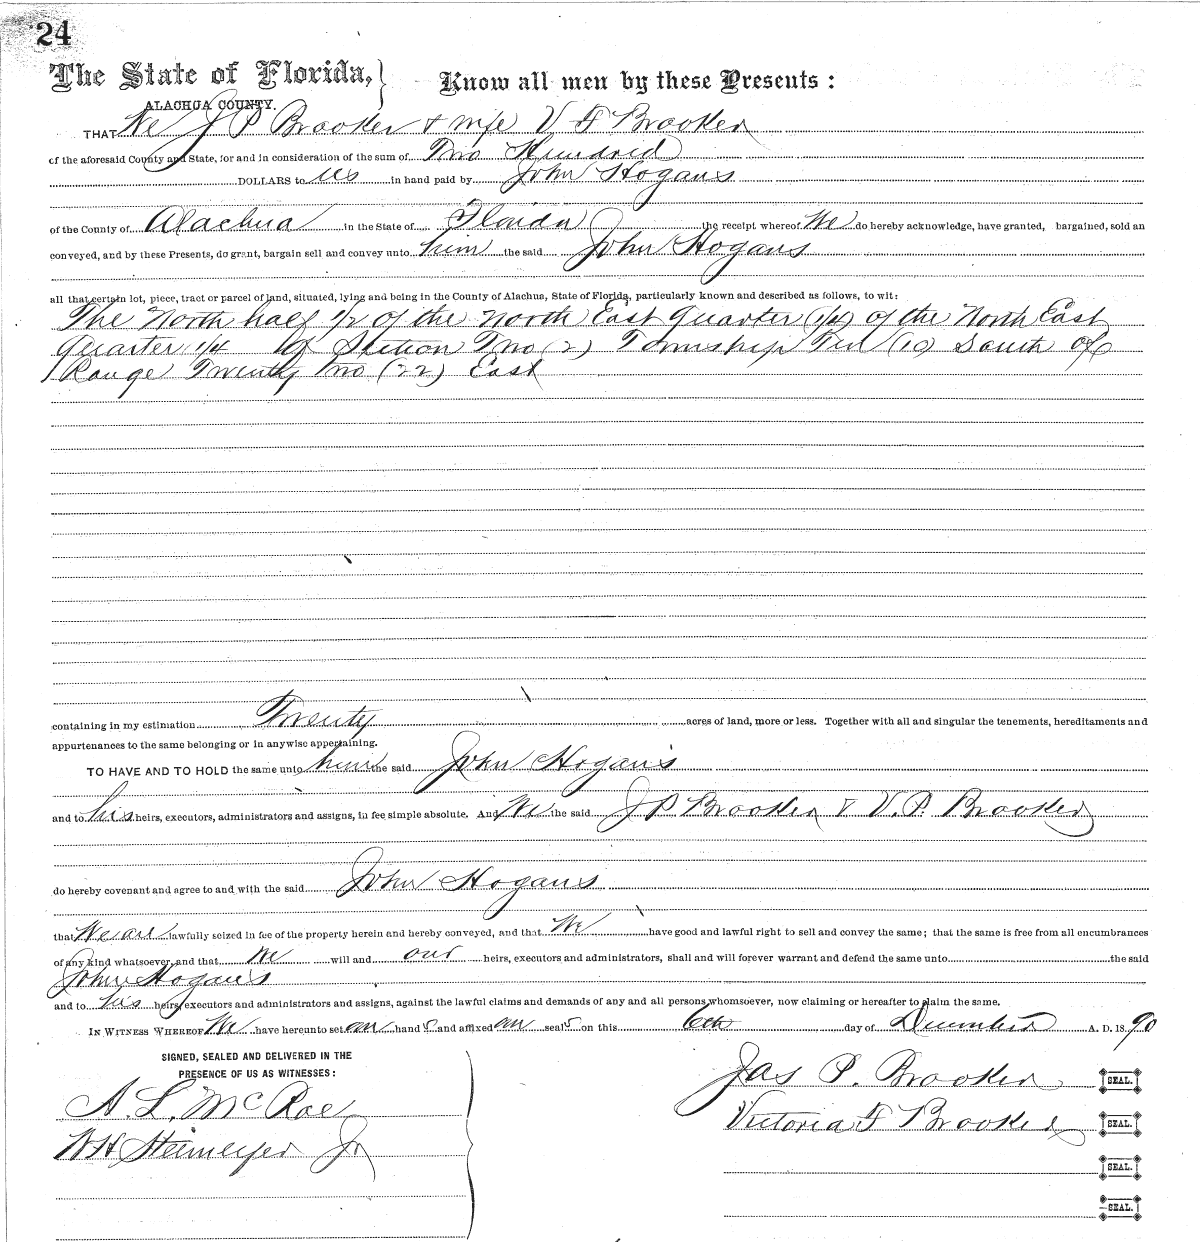 24
The State of Florida, } Know all men by these Presents :
ALACHUA COUNTY.
THAT We J P Brooker & wife V F Brooker
of the aforesaid County and State, for and in consideration of the sum of Two Hundred
DOLLARS to us in hand paid by John Hogans
of the County of Alachua in the State of Florida the receipt whereof We do hereby acknowledge, have granted, bargained, sold an
conveyed, and by these Presents, do grant, bargain sell and convey unto him the said John Hogans
all that certain lot, piece, tract or parcel of land, situated, lying and being in the County of Alachua, State of Florida, particularly known and described as follows, to wit:
The North half 1/2 of the North East Quarter (1/4) of the North East
Quarter 1/4 of Section Two (2) Township Ten (10) South of
Range Twenty Two (22) East
containing in my estimation Twenty acres of land, more or less. Together with all and singular the tenements, hereditaments and
appurtenances to the same belonging or in anywise appertaining.
TO HAVE AND TO HOLD the same unto him the said John Hogans
and to his heirs, executors, administrators and assigns, in fee simple absolute. And We the said J P Brooker & V. P. Brooker
do hereby covenant and agree to and with the said John Hogans
that We are lawfully seized in fee of the property herein and hereby conveyed, and that We have good and lawful right to sell and convey the same; that the same is free from all encumbrances
of any kind whatsoever, and that We will and our heirs, executors and administrators, shall and will forever warrant and defend the same unto the said
John Hogans
and to his heirs, executors and administrators and assigns, against the lawful claims and demands of any and all persons whomsoever, now claiming or hereafter to claim the same.
IN WITNESS WHEREOF We have hereunto set our hand s and affixed our seal s on this 6th day of December A. D. 18 90
SIGNED, SEALED AND DELIVERED IN THE
PRESENCE OF US AS WITNESSES:
Jas P. Brooker SEAL.
A. L. McRae
Victoria F Brooker SEAL.
WH Steinmeyer Jr
SEAL.
SEAL.